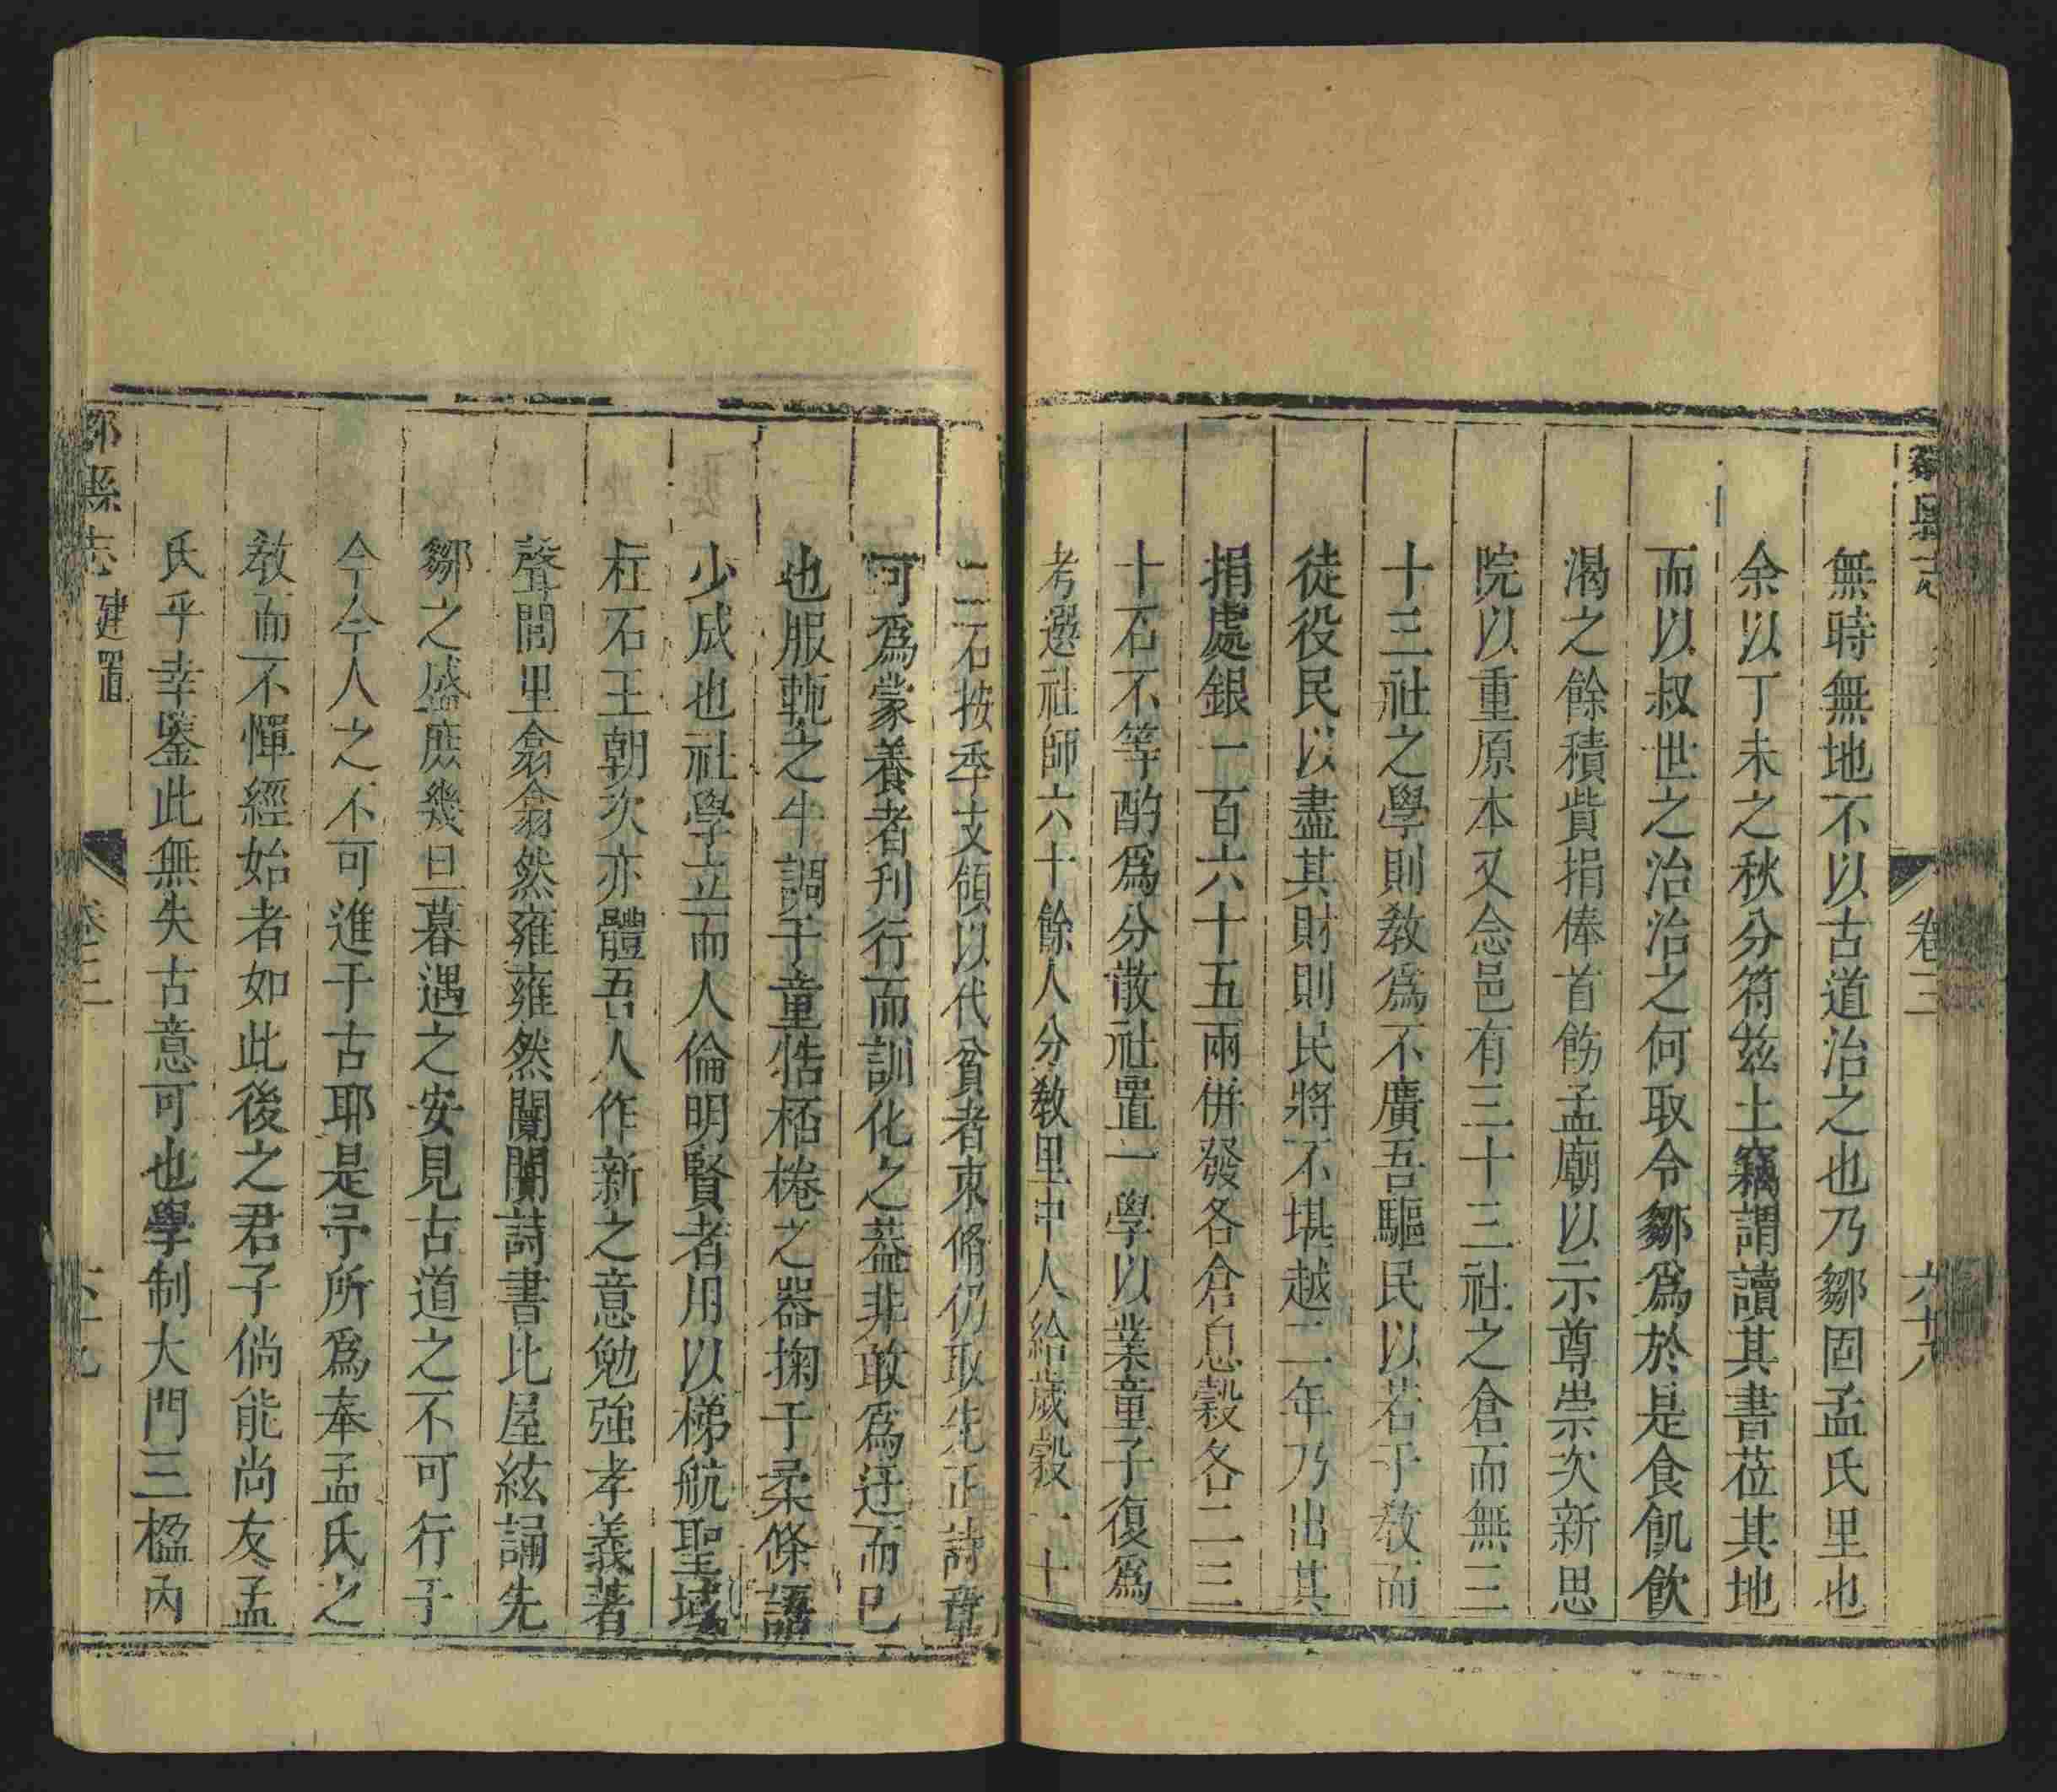 鄒縣志 卷三 六十八
無時無地不以古道治之也乃鄒固孟氏里也
余以丁未之秋分符茲土竊謂讀其書莅其地
而以叔世之治治之何取令鄒爲於是食飢飲
渴之餘積貲捐俸首飭孟廟以示尊崇次新思
院以重原本又念邑有三十三社之倉而無三
十三社之學則教爲不廣吾驅民以若于教而
徒役民以盡其財則民將不堪越二年乃出其
捐處銀一百六十五兩併發各倉息穀各二三
十石不等酌爲分散社置一學以業童子復爲
考選社師六十餘人分教里中人給歲穀一十
二石按季支領以代貧者束脩仍取先正詩章
可爲蒙養者刊行而訓化之葢非敢爲迂而已
也服軛之牛調于童牿桮棬之器掬于柔條語
少成也社學立而人倫明賢者用以梯航聖域
枉石王朝次亦體吾人作新之意勉強孝義著
聲閭里翕翕然雍雍然闤闤詩書比屋絃誦先
鄒之盛庶幾旦暮遇之安見古道之不可行于
今今人之不可進于古耶是予所爲奉孟氏之
教而不憚經始者如此後之君子倘能尚友孟
氏乎幸鑒此無失古意可也學制大門三楹內
鄒縣志 建置 卷三 六十九